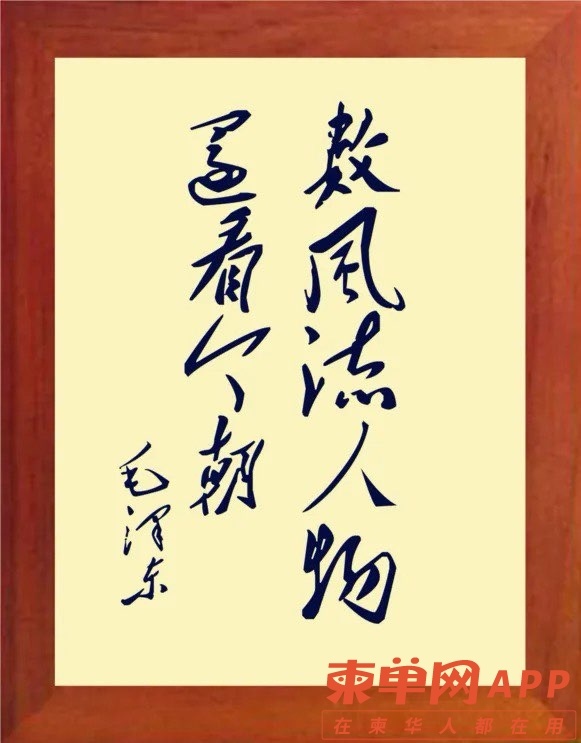 数风流人物
还看今朝
毛泽东
柬单网APP
在柬华人都在用